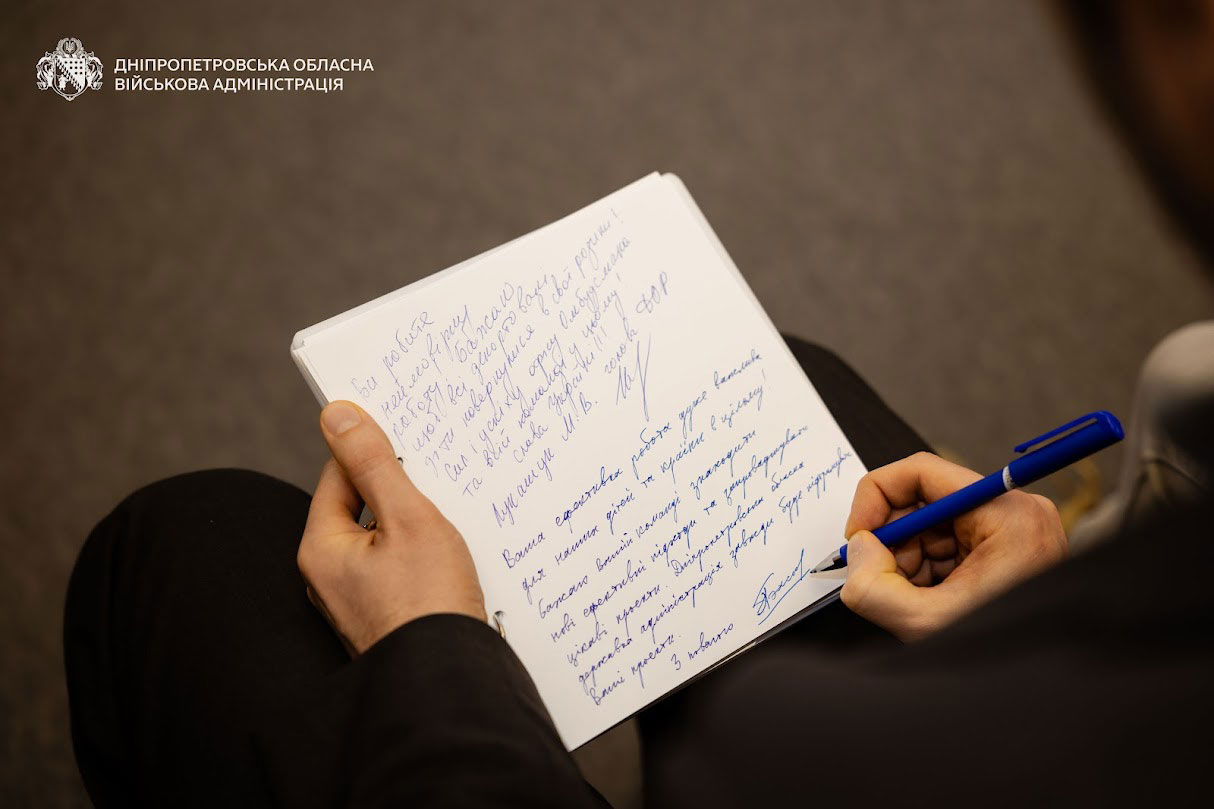 ДНІПРОПЕТРОВСЬКА ОБЛАСНА
ВІЙСЬКОВА АДМІНІСТРАЦІЯ
Ви робите
неймовірну
роботу! Бажаю
щоб всі депортовані
діти повернулися в свої родини!
Сил і успіху офісу Омбудсмана
та всій команді у цьому!
Слава Україні!!!
Лукашук М.В. голова ДОР
Ваша ефективна робота дуже важлива
для наших дітей та країни в цілому!
Бажаю вашій команді знаходити
нові ефективні підходи та запроваджувати
цікаві проекти. Дніпропетровська обласна
державна адміністрація завжди буде підтримувати
Ваші проекти.
З повагою